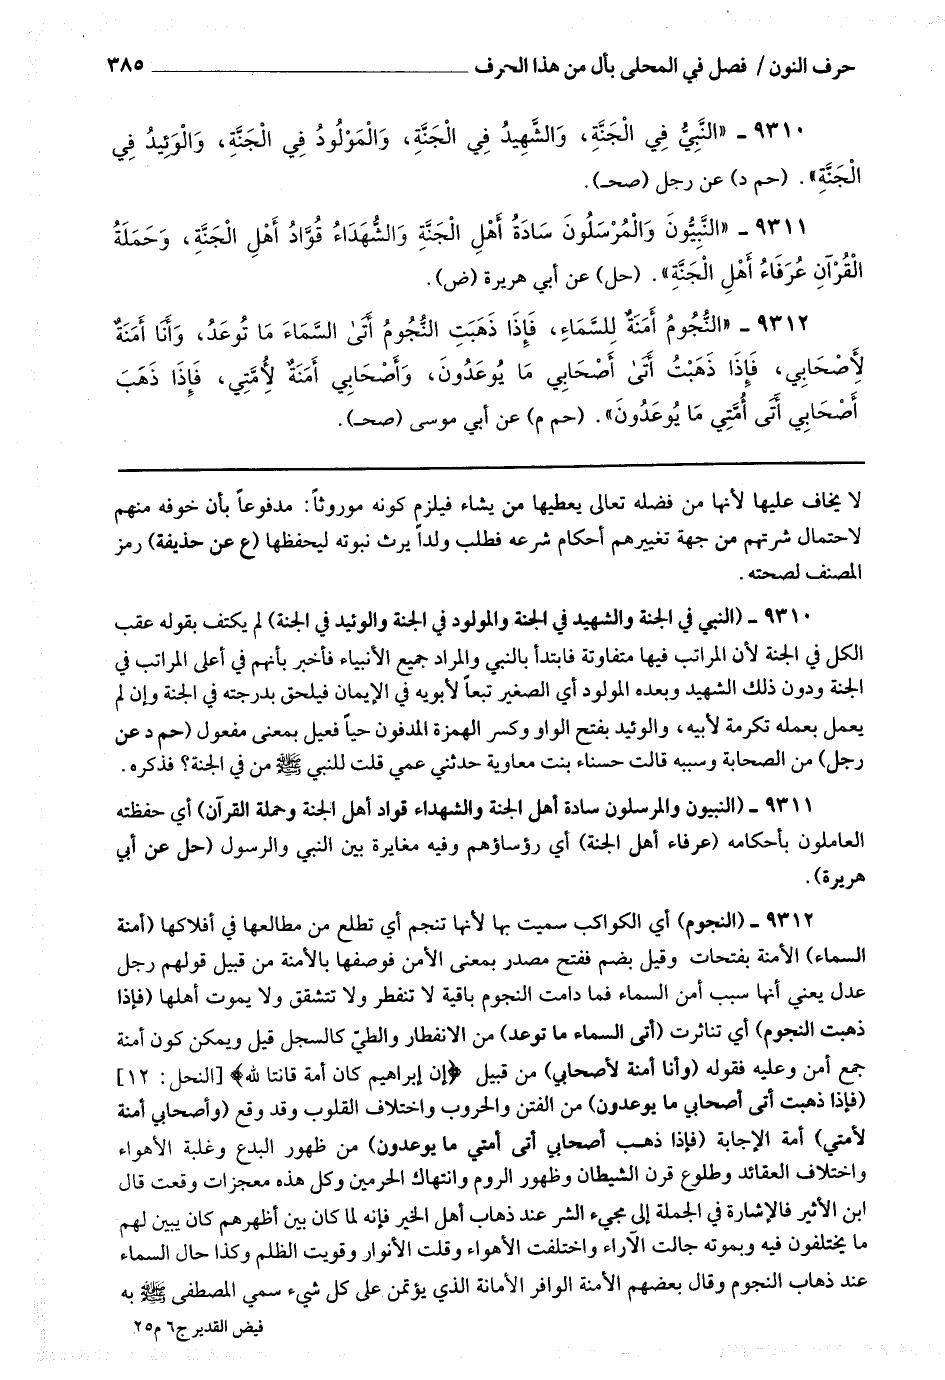 حرف النون / فصل في المحلى بأل من هذا الحرف ــــــــــــــــــــــ ٣٨٥
٩٣١٠ ـ «النَّبِيُّ فِي الْجَنَّةِ، وَالشَّهِيدُ فِي الْجَنَّةِ، وَالْمَوْلُودُ فِي الْجَنَّةِ، وَالْوَئِيدُ فِي
الْجَنَّةِ». (حم د) عن رجل (صحـ).
٩٣١١ ـ «النَّبِيُّونَ وَالْمُرْسَلُونَ سَادَةُ أَهْلِ الْجَنَّةِ وَالشُّهَدَاءُ قُوَّادُ أَهْلِ الْجَنَّةِ، وَحَمَلَةُ
الْقُرْآنِ عُرَفَاءُ أَهْلِ الْجَنَّةِ». (حل) عن أبي هريرة (ض).
٩٣١٢ ـ «النُّجُومُ أَمَنَةٌ لِلسَّمَاءِ، فَإِذَا ذَهَبَتِ النُّجُومُ أَتَى السَّمَاءَ مَا تُوعَدُ، وَأَنَا أَمَنَةٌ
لِأَصْحَابِي، فَإِذَا ذَهَبْتُ أَتَى أَصْحَابِي مَا يُوعَدُونَ، وَأَصْحَابِي أَمَنَةٌ لِأُمَّتِي، فَإِذَا ذَهَبَ
أَصْحَابِي أَتَى أُمَّتِي مَا يُوعَدُونَ». (حم م) عن أبي موسى (صحـ).
لا يخاف عليها لأنها من فضله تعالى يعطيها من يشاء فيلزم كونه موروثاً: مدفوعاً بأن خوفه منهم
لاحتمال شرتهم من جهة تغييرهم أحكام شرعه فطلب ولداً يرث نبوته ليحفظها (ع عن حذيفة) رمز
المصنف لصحته.
٩٣١٠ ـ (النبي في الجنة والشهيد في الجنة والمولود في الجنة والوئيد في الجنة) لم يكتف بقوله عقب
الكل في الجنة لأن المراتب فيها متفاوتة فابتدأ بالنبي والمراد جميع الأنبياء فأخبر بأنهم في أعلى المراتب في
الجنة ودون ذلك الشهيد وبعده المولود أي الصغير تبعاً لأبويه في الإيمان فيلحق بدرجته في الجنة وإن لم
يعمل بعمله تكرمة لأبيه، والوئيد بفتح الواو وكسر الهمزة المدفون حياً فعيل بمعنى مفعول (حم د عن
رجل) من الصحابة وسببه قالت حسناء بنت معاوية حدثني عمي قلت للنبي ﷺ من في الجنة؟ فذكره.
٩٣١١ ـ (النبيون والمرسلون سادة أهل الجنة والشهداء قواد أهل الجنة وحملة القرآن) أي حفظته
العاملون بأحكامه (عرفاء أهل الجنة) أي رؤساؤهم وفيه مغايرة بين النبي والرسول (حل عن أبي
هريرة).
٩٣١٢ ـ (النجوم) أي الكواكب سميت بها لأنها تنجم أي تطلع من مطالعها في أفلاكها (أمنة
السماء) الأمنة بفتحات وقيل بضم ففتح مصدر بمعنى الأمن فوصفها بالأمنة من قبيل قولهم رجل
عدل يعني أنها سبب أمن السماء فما دامت النجوم باقية لا تنفطر ولا تتشقق ولا يموت أهلها (فإذا
ذهبت النجوم) أي تناثرت (أتى السماء ما توعد) من الانفطار والطيّ كالسجل قيل ويمكن كون أمنة
جمع أمن وعليه فقوله (وأنا أمنة لأصحابي) من قبيل ﴿إن إبراهيم كان أمة قانتا لله﴾ [النحل: ١٢]
(فإذا ذهبت أتى أصحابي ما يوعدون) من الفتن والحروب واختلاف القلوب وقد وقع (وأصحابي أمنة
لأمتي) أمة الإجابة (فإذا ذهب أصحابي أتى أمتي ما يوعدون) من ظهور البدع وغلبة الأهواء
واختلاف العقائد وطلوع قرن الشيطان وظهور الروم وانتهاك الحرمين وكل هذه معجزات وقعت قال
ابن الأثير فالإشارة في الجملة إلى مجيء الشر عند ذهاب أهل الخير فإنه لما كان بين أظهرهم كان يبين لهم
ما يختلفون فيه وبموته جالت الآراء واختلفت الأهواء وقلت الأنوار وقويت الظلم وكذا حال السماء
عند ذهاب النجوم وقال بعضهم الأمنة الوافر الأمانة الذي يؤتمن على كل شيء سمي المصطفى ﷺ به
فيض القدير ج٦ م٢٥